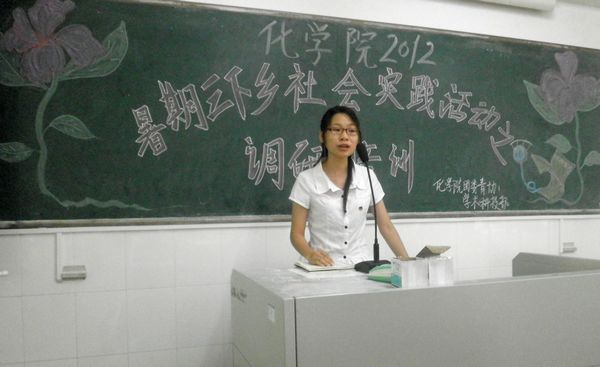 化学院2012
暑期三下乡社会实践活动之
调研培训
化学院团委青协
学术科技部